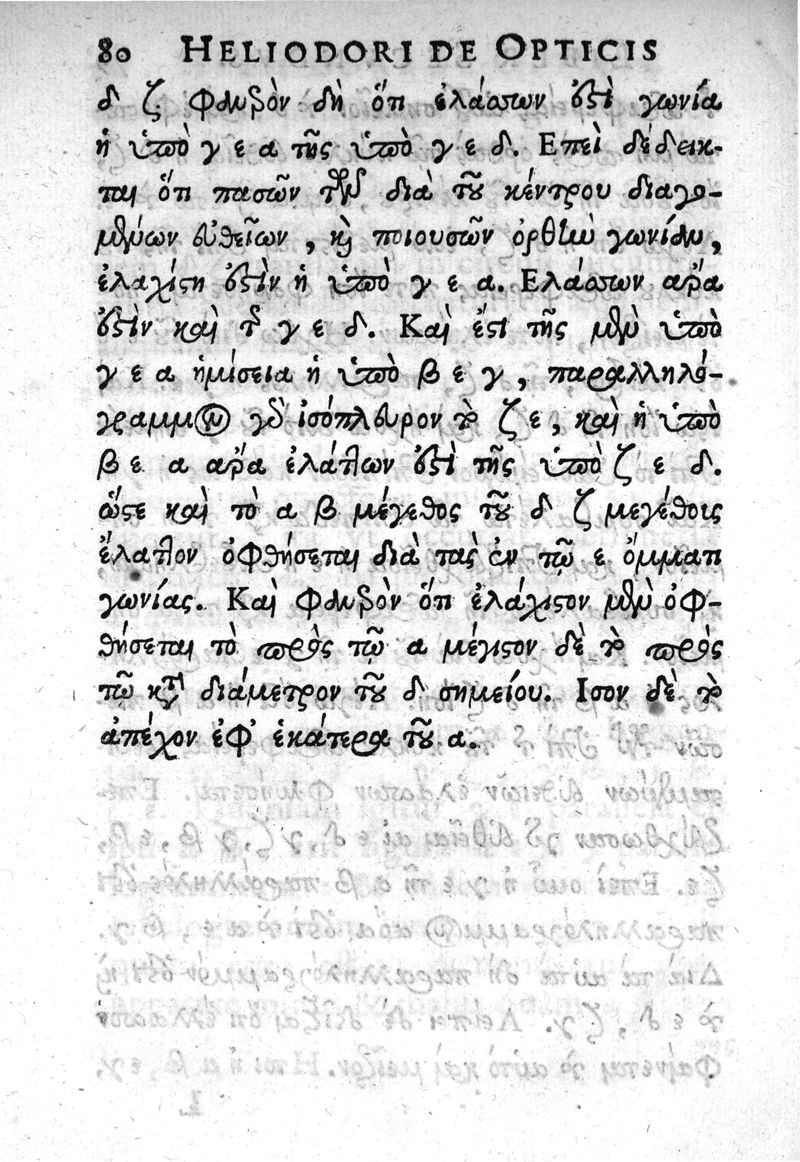 80 HELIODORI DE OPTICIS
δ ζ. φανερὸν δὴ ὅτι ἐλάσσων ἐστὶ γωνία
ἡ ὑπὸ γ ε α τῆς ὑπὸ γ ε δ. Επεὶ δέδεικ-
ται ὅτι πασῶν τῶν διὰ τοῦ κέντρου διαγο-
μένων εὐθείων, καὶ ποιουσῶν ὀρθὴν γωνίαν,
ἐλαχίστη ἐστὶν ἡ ὑπὸ γ ε α. Ελάσσων ἄρα
ἐστὶν καὶ τῆς γ ε δ. Καὶ ἔστι τῆς μὲν ὑπὸ
γ ε α ἡμίσεια ἡ ὑπὸ β ε γ, παραλληλό-
γραμμον γὰρ ἰσόπλευρον τὸ ζ ε, καὶ ἡ ὑπὸ
β ε α ἄρα ἐλάττων ἐστὶ τῆς ὑπὸ ζ ε δ.
ὥστε καὶ τὸ α β μέγεθος τοῦ δ ζ μεγέθοις
ἔλαττον ὀφθήσεται διὰ τὰς ἐν τῷ ε ὄμματι
γωνίας. Καὶ φανερὸν ὅτι ἐλάχιστον μὲν ὀφ-
θήσεται τὸ πρὸς τῷ α μέγιστον δὲ τὸ πρὸς
τῷ κατὰ διάμετρον τοῦ δ σημείου. Ισον δὲ τὸ
ἀπέχον ἐφ' ἑκάτερα τοῦ α.